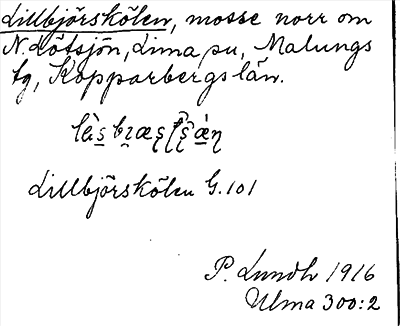 Lillbjörskölen, mosse norr om
N. Lötsjön, Lima sn, Malungs
tg, Kopparbergs län.
Lillbjörskölen G. 101
P. Lundh 1916
Ulma 300:2